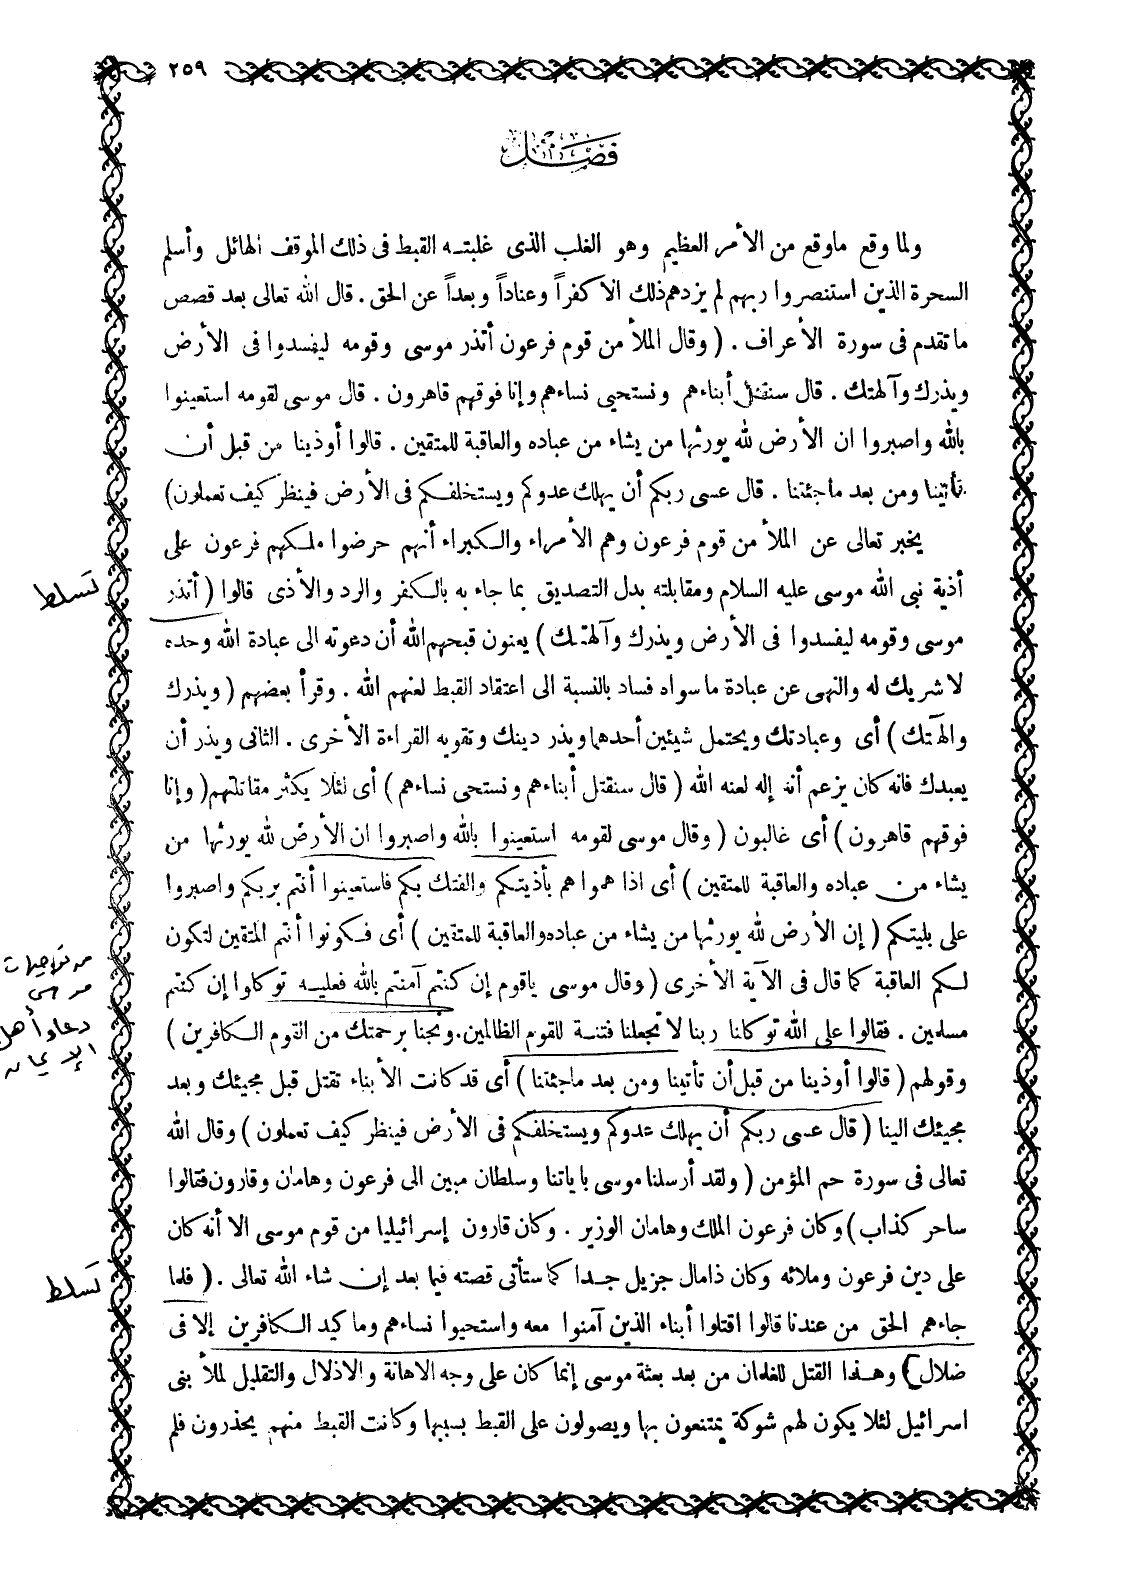 ٢٥٩
فصل
ولما وقع ماوقع من الأمر العظيم وهو الغلب الذى غلبتـه القبط فى ذلك الموقف الهائل وأسلم
السحرة الذين استنصروا ربهم لم يزدهم ذلك الا كفراً وعناداً وبعداً عن الحق . قال الله تعالى بعد قصص
ما تقدم فى سورة الأعراف . ( وقال الملأ من قوم فرعون أتذر موسى وقومه ليفسدوا فى الأرض
ويذرك وآلهتك . قال سنقتل أبناءهم ونستحيى نساءهم وإنا فوقهم قاهرون . قال موسى لقومه استعينوا
بالله واصبروا ان الأرض لله يورثها من يشاء من عباده والعاقبة للمتقين . قالوا أوذينا من قبل أن
تأتينا ومن بعد ماجئتنا . قال عسى ربكم أن يهلك عدوكم ويستخلفـكم فى الأرض فينظر كيف تعملون)
يخبر تعالى عن الملأ من قوم فرعون وهم الأمراء والـكبراء أنهم حرضوا ملـكهم فرعون على
أذية نبى الله موسى عليه السلام ومقابلته بدل التصديق بما جاء به بالـكفر والرد والأذى قالوا ( أتذر
تسلط
موسى وقومه ليفسدوا فى الأرض ويذرك وآلهتـك ) يعنون قبحهم الله أن دعوته الى عبادة الله وحده
لا شريك له والنهى عن عبادة ما سواه فساد بالنسبة الى اعتقاد القبط لعنهم الله . وقرأ بعضهم ( ويذرك
والهتك ) أى وعبادتك ويحتمل شيئين أحدهما ويذر دينك وتقويه القراءة الأخرى . الثانى ويذر أن
يعبدك فانه كان يزعم أنه إله لعنه الله ( قال سنقتل أبناءهم ونستحى نساءهم ) أى لئلا يكثر مقاتلتهم ( وإنا
فوقهم قاهرون ) أى غالبون ( وقال موسى لقومه استعينوا بالله واصبروا ان الأرض لله يورثها من
يشاء من عباده والعاقبة للمتقين ) أى اذا هموا هم بأذيتـكم والفتك بكم فاستعينوا أنتم بربكم واصبروا
على بليتـكم ( إن الأرض لله يورثها من يشاء من عباده والعاقبة للمتقين ) أى فـكونوا أنتم المتقين لتكون
لـكم العاقبة كما قال فى الآية الأخرى ( وقال موسى ياقوم إن كنتم آمنتم بالله فعليـه توكلوا إن كنتم
من توجيهات
موسى
مسلمين . فقالوا على الله توكلنا ربنا لا تجعلنا فتنـة للقوم الظالمين. ونجنا برحمتك من القوم الـكافرين )
دعاء أهل
الإيمان
وقولهم ( قالوا أوذينا من قبل أن تأتينا ومن بعد ماجئتنا ) أى قد كانت الأبناء تقتل قبل مجيئك وبعد
مجيئك الينا ( قال عسى ربكم أن يهلك عدوكم ويستخلفـكم فى الأرض فينظر كيف تعملون ) وقال الله
تعالى فى سورة حم المؤمن ( ولقد أرسلنا موسى باياتنا وسلطان مبين الى فرعون وهامان وقارون فقالوا
ساحر كذاب ) وكان فرعون الملك وهامان الوزير . وكان قارون إسرائيليا من قوم موسى الا أنه كان
على دين فرعون وملائه وكان ذامال جزيل جـدا كما ستأتى قصته فيما بعد إن شاء الله تعالى . ( فلما
تسلط
جاءهم الحق من عندنا قالوا اقتلوا أبناء الذين آمنوا معه واستحيوا نساءهم وما كيد الـكافرين إلا فى
ضلال ) وهـذا القتل للغلمان من بعد بعثة موسى إنما كان على وجه الاهانة والاذلال والتقليل لملأ بنى
اسرائيل لئلا يكون لهم شوكة يمتنعون بها ويصولون على القبط بسببها وكانت القبط منهم يحذرون فلم